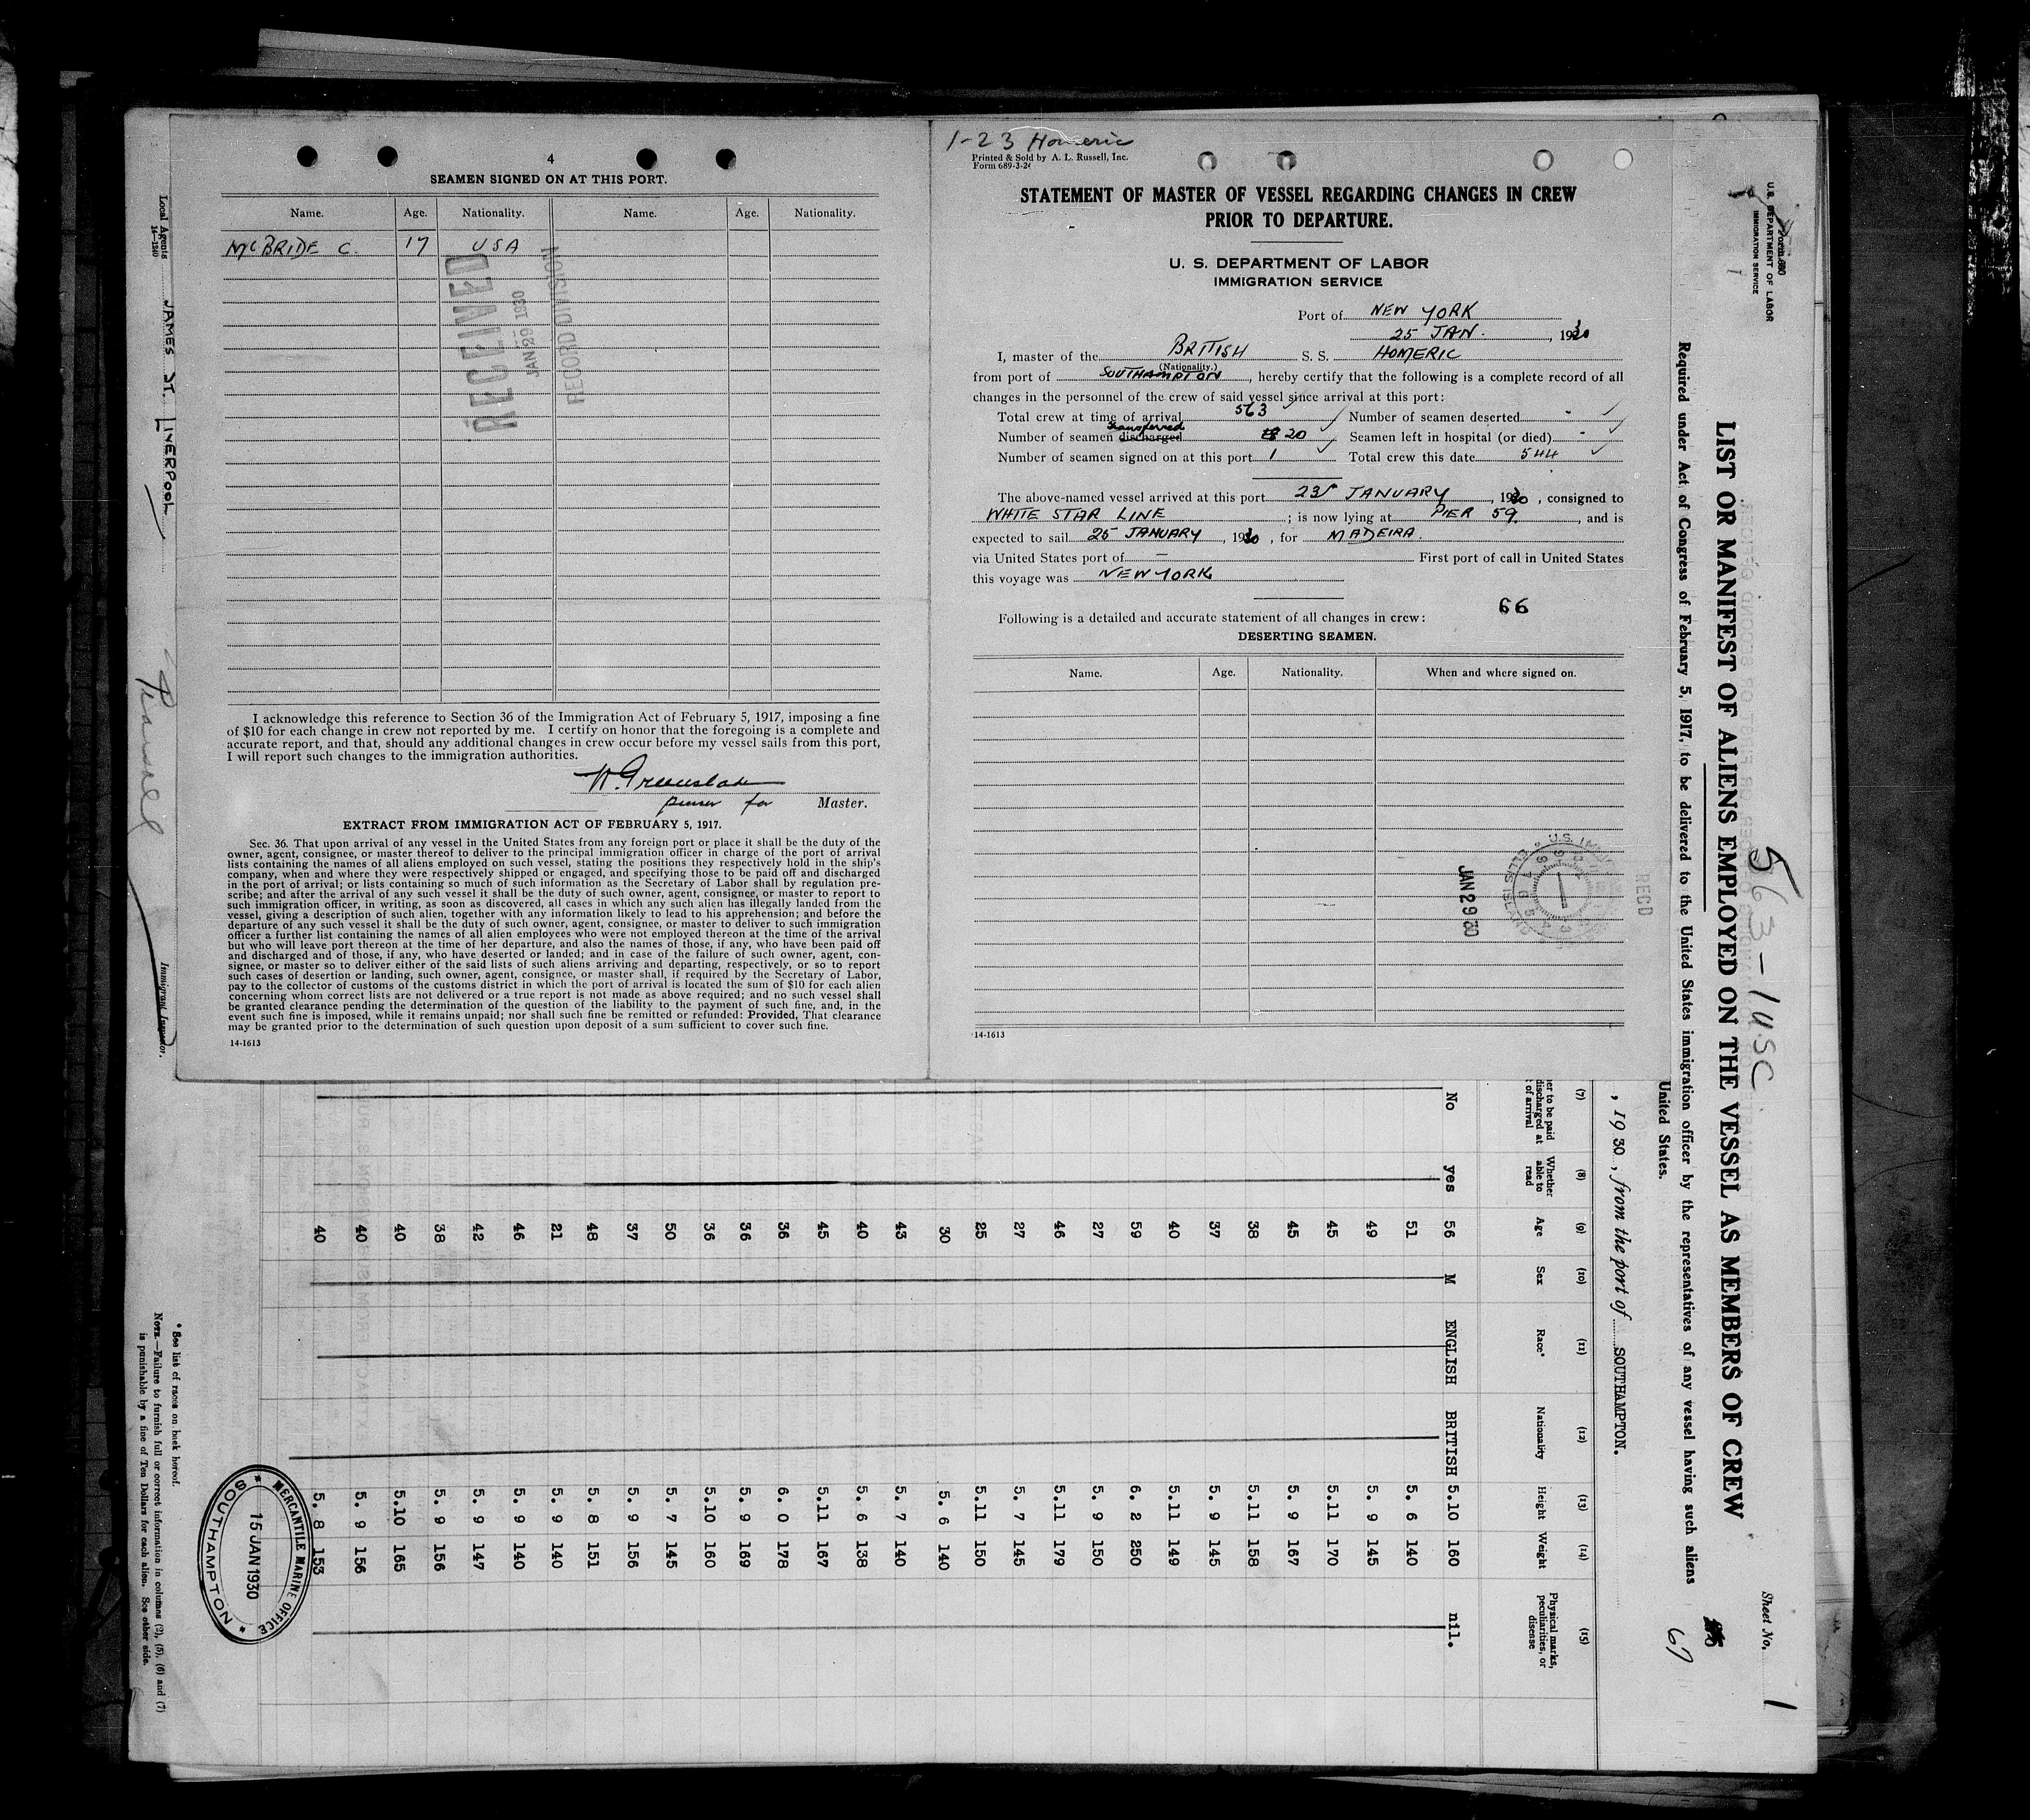 4
SEAMEN SIGNED ON AT THIS PORT.
Name. Age. Nationality. Name. Age. Nationality.
McBRIDE C. 17 USA
RECEIVED
JAN 29 1930
RECORD DIVISION
I acknowledge this reference to Section 36 of the Immigration Act of February 5, 1917, imposing a fine
of $10 for each change in crew not reported by me. I certify on honor that the foregoing is a complete and
accurate report, and that, should any additional changes in crew occur before my vessel sails from this port,
I will report such changes to the immigration authorities.
purser for Master.
EXTRACT FROM IMMIGRATION ACT OF FEBRUARY 5, 1917.
Sec. 36. That upon arrival of any vessel in the United States from any foreign port or place it shall be the duty of the
owner, agent, consignee, or master thereof to deliver to the principal immigration officer in charge of the port of arrival
lists containing the names of all aliens employed on such vessel, stating the positions they respectively hold in the ship's
company, when and where they were respectively shipped or engaged, and specifying those to be paid off and discharged
in the port of arrival; or lists containing so much of such information as the Secretary of Labor shall by regulation pre-
scribe; and after the arrival of any such vessel it shall be the duty of such owner, agent, consignee, or master to report to
such immigration officer, in writing, as soon as discovered, all cases in which any such alien has illegally landed from the
vessel, giving a description of such alien, together with any information likely to lead to his apprehension; and before the
departure of any such vessel it shall be the duty of such owner, agent, consignee, or master to deliver to such immigration
officer a further list containing the names of all alien employees who were not employed thereon at the time of the arrival
but who will leave port thereon at the time of her departure, and also the names of those, if any, who have been paid off
and discharged and of those, if any, who have deserted or landed; and in case of the failure of such owner, agent, con-
signee, or master so to deliver either of the said lists of such aliens arriving and departing, respectively, or so to report
such cases of desertion or landing, such owner, agent, consignee, or master shall, if required by the Secretary of Labor,
pay to the collector of customs of the customs district in which the port of arrival is located the sum of $10 for each alien
concerning whom correct lists are not delivered or a true report is not made as above required; and no such vessel shall
be granted clearance pending the determination of the question of the liability to the payment of such fine, and, in the
event such fine is imposed, while it remains unpaid; nor shall such fine be remitted or refunded: Provided, That clearance
may be granted prior to the determination of such question upon deposit of a sum sufficient to cover such fine.
14-1613
1-23 Homeric
Printed & Sold by A. L. Russell, Inc.
Form 689-3-26
STATEMENT OF MASTER OF VESSEL REGARDING CHANGES IN CREW
PRIOR TO DEPARTURE.
U. S. DEPARTMENT OF LABOR
IMMIGRATION SERVICE
Port of NEW YORK
25 JAN. , 1930
I, master of the BRITISH S. S. HOMERIC
(Nationality.)
from port of SOUTHAMPTON, hereby certify that the following is a complete record of all
changes in the personnel of the crew of said vessel since arrival at this port:
Total crew at time of arrival 563 Number of seamen deserted -
transferred
Number of seamen discharged 20 Seamen left in hospital (or died) -
Number of seamen signed on at this port 1 Total crew this date 544
The above-named vessel arrived at this port 23 JANUARY, 1930, consigned to
WHITE STAR LINE ; is now lying at PIER 59, and is
expected to sail 25 JANUARY, 1930, for MADEIRA.
via United States port of — First port of call in United States
this voyage was NEW YORK
66
Following is a detailed and accurate statement of all changes in crew:
DESERTING SEAMEN.
Name. Age. Nationality. When and where signed on.
JAN 29 30
REC'D
14-1613
Local Agents JAMES ST. LIVERPOOL
14-1240
Immigrant Inspector.
Form 680
U.S. DEPARTMENT OF LABOR
IMMIGRATION SERVICE
563-1USC
Sheet No. 1
LIST OR MANIFEST OF ALIENS EMPLOYED ON THE VESSEL AS MEMBERS OF CREW
67
Required under Act of Congress of February 5, 1917, to be delivered to the United States immigration officer by the representatives of any vessel having such aliens
United States.
, 1930, from the port of SOUTHAMPTON.
(7) (8) (9) (10) (11) (12) (13) (14) (15)
er to be paid discharged at of arrival Whether able to read Age Sex Race* Nationality Height Weight Physical marks, peculiarities, or disease
No yes 56 M ENGLISH BRITISH 5.10 160 nil.
51 5. 6 140
49 5. 9 145
45 5.11 170
45 5. 9 167
38 5.11 158
37 5. 9 145
40 5.11 149
59 6. 2 250
27 5. 9 150
46 5.11 179
27 5. 7 145
25 5.11 150
30 5. 6 140
43 5. 7 140
40 5. 6 138
45 5.11 167
36 6. 0 178
36 5. 9 169
36 5.10 160
50 5. 7 145
37 5. 9 156
48 5. 8 151
21 5. 9 140
46 5. 9 140
42 5. 9 147
38 5. 9 156
40 5.10 165
40 5. 9 156
40 5. 8 153
MERCANTILE MARINE OFFICE
15 JAN 1930
SOUTHAMPTON
* See list of races on back hereof.
NOTE.—Failure to furnish full or correct information in columns (2), (5), (6) and (7)
is punishable by a fine of Ten Dollars for each alien. See other side.